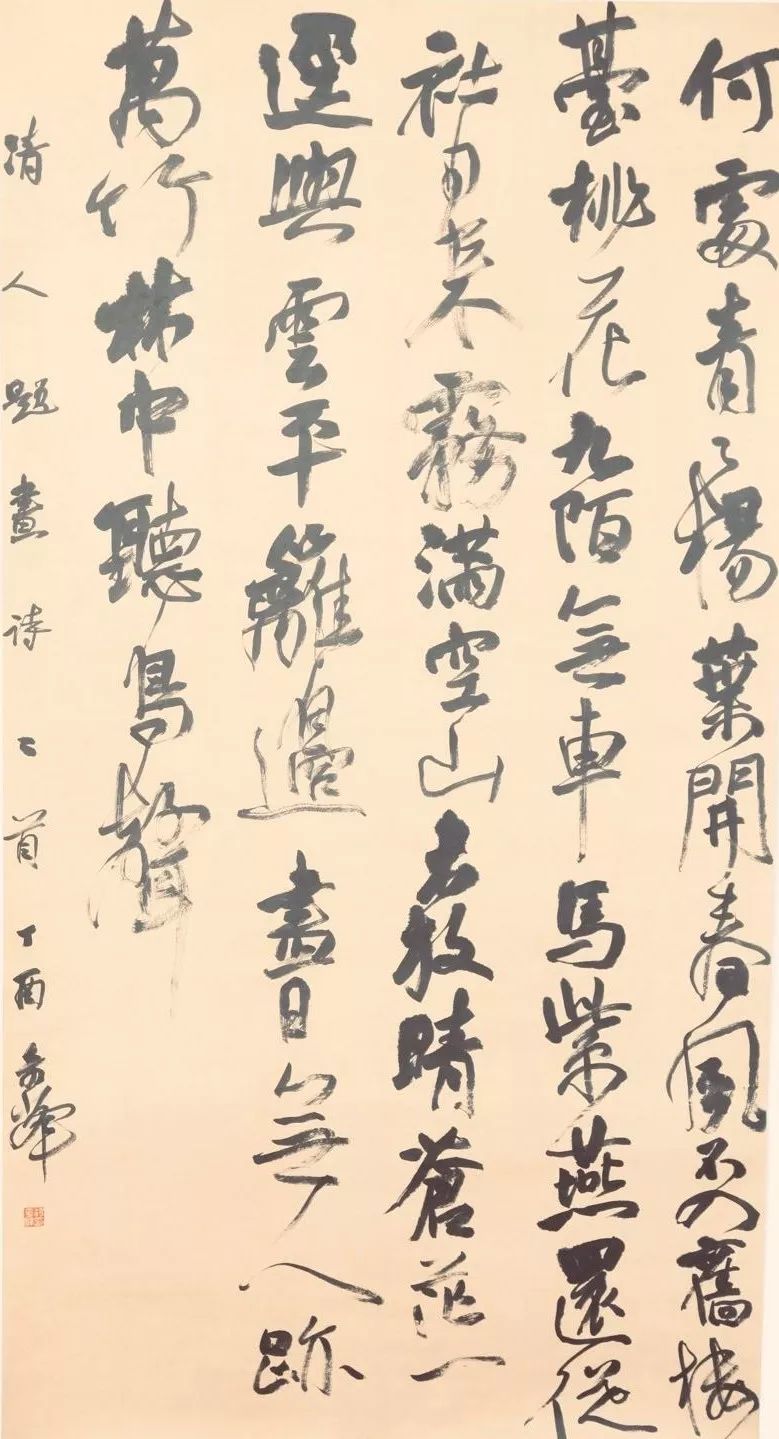 何處青々楊葉開春風不入舊樓
臺桃花九陌無車馬紫燕還從
社日來霧滿空山未放晴蒼茫一
逕與雲平籬邊盡日無人跡
萬竹林中聽鳥聲
清人題畫詩二首丁酉